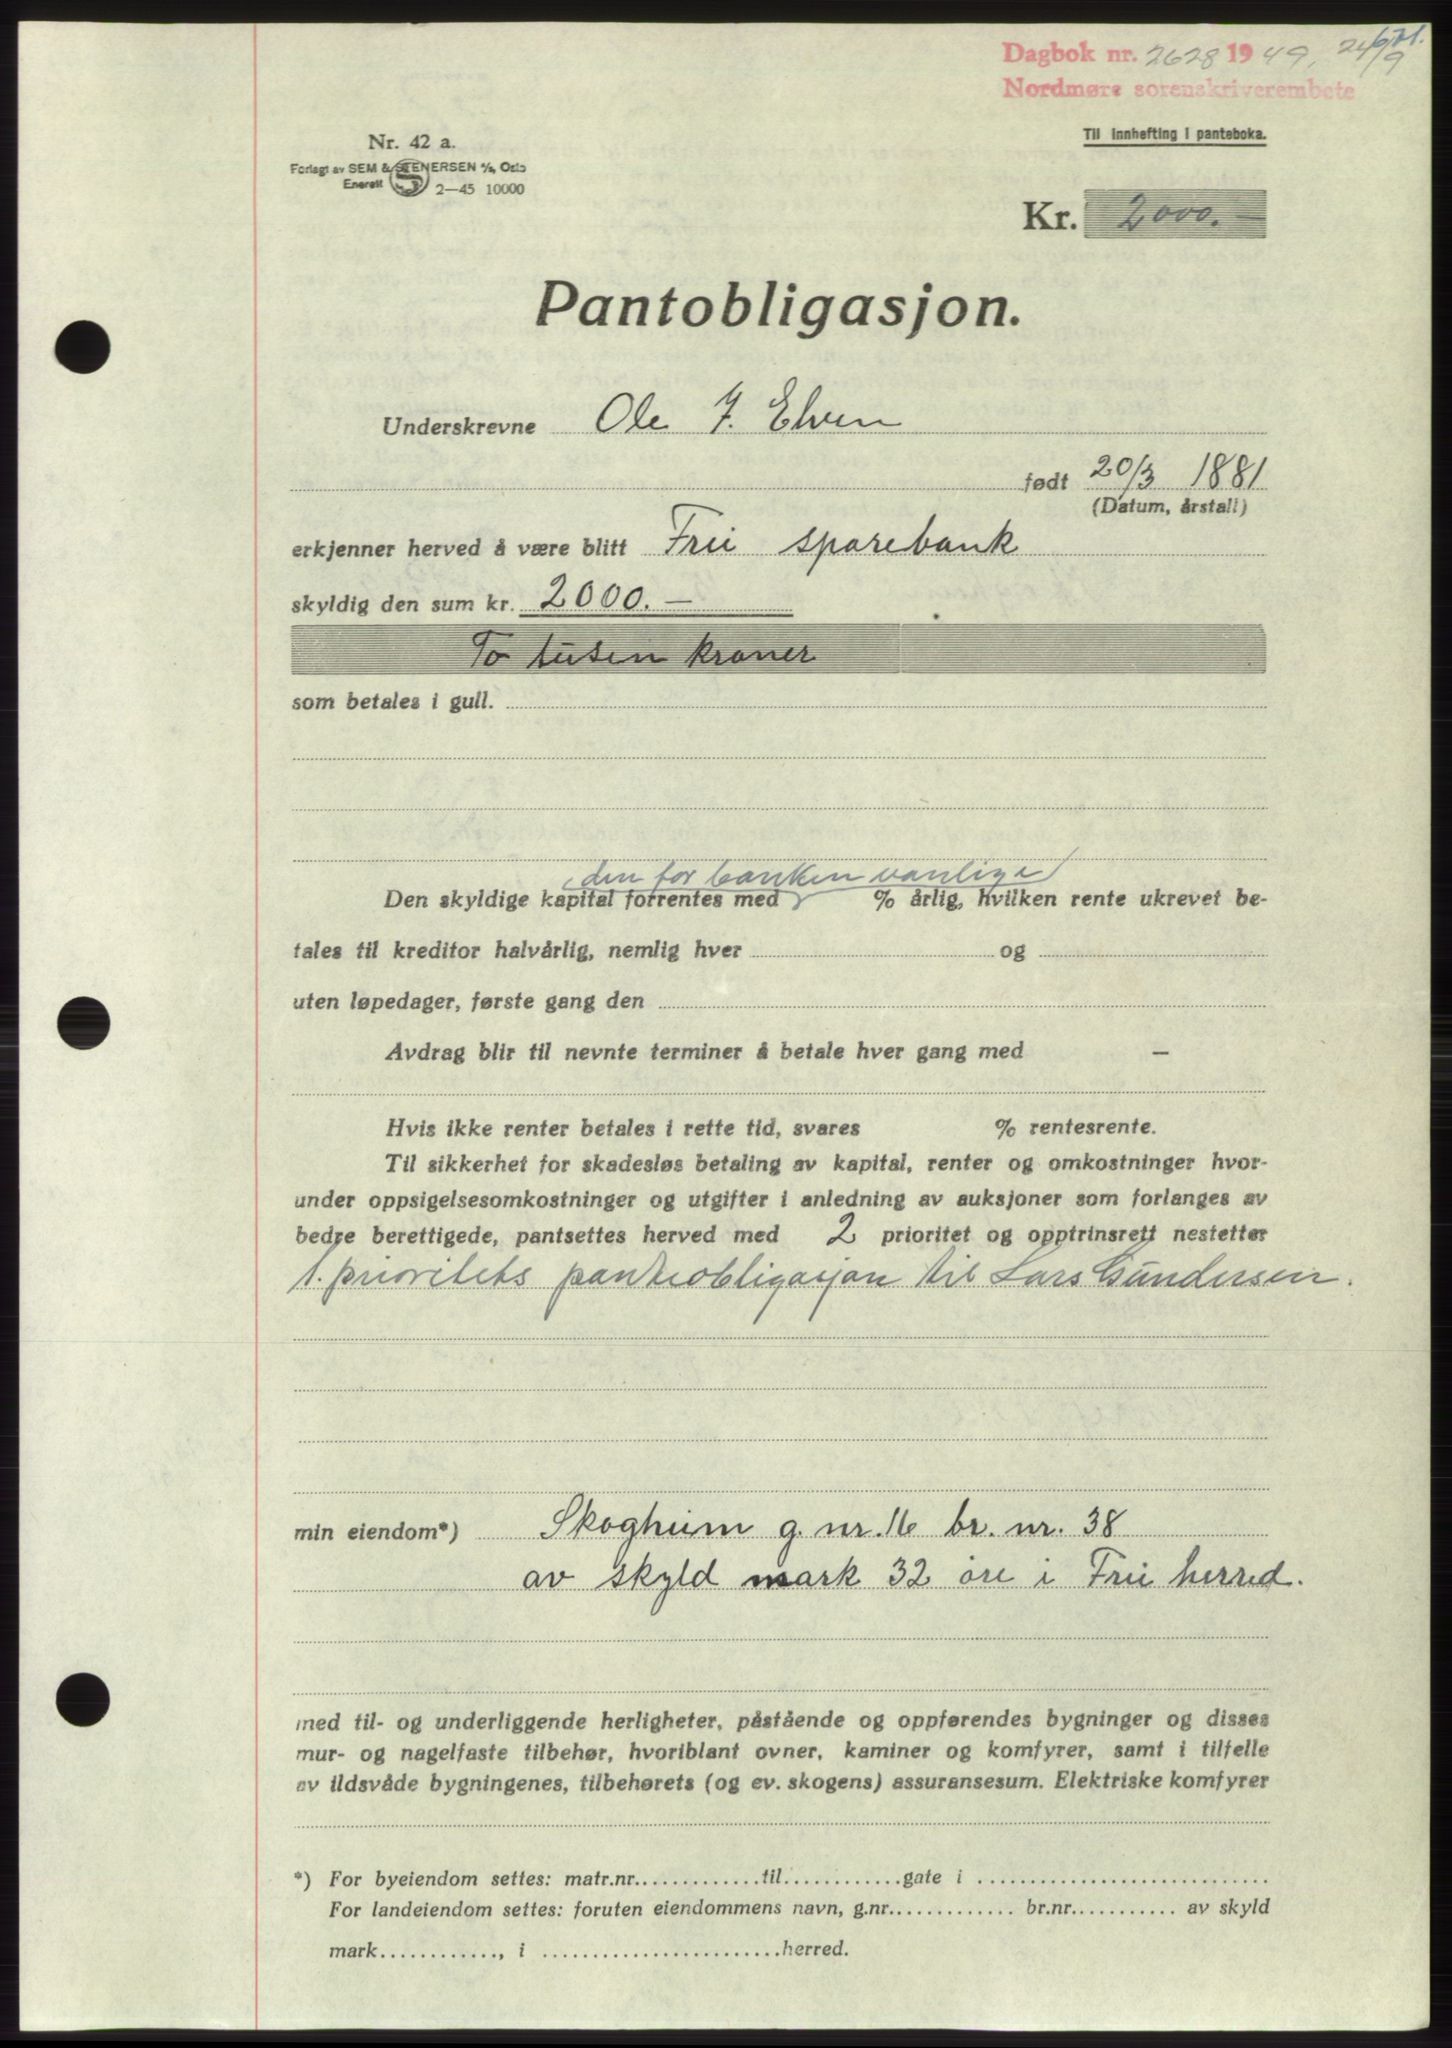 671.
Dagbok nr. 2628 1949, 24/9
Nordmøre sorenskriverembete
Til innhefting i panteboka.
Nr. 42 a.
Forlagt av SEM & STENERSEN A/S, Oslo
Enerett 2—45 10000
Kr. 2000.—
Pantobligasjon.
Underskrevne Ole J. Elven
født 20/3 1881
(Datum, årstall)
erkjenner herved å være blitt Frei sparebank
skyldig den sum kr. 2000.—
To tusen kroner
som betales i gull.
den for banken vanlige
Den skyldige kapital forrentes med % årlig, hvilken rente ukrevet be-
tales til kreditor halvårlig, nemlig hver og
uten løpedager, første gang den
Avdrag blir til nevnte terminer å betale hver gang med —
Hvis ikke renter betales i rette tid, svares % rentesrente.
Til sikkerhet for skadesløs betaling av kapital, renter og omkostninger hvor-
under oppsigelsesomkostninger og utgifter i anledning av auksjoner som forlanges av
bedre berettigede, pantsettes herved med 2 prioritet og opptrinsrett nestetter
1. prioritets panteobligasjon til Lars Gundersen.
min eiendom*) Skogheim g. nr. 16 br. nr. 38
av skyld mark 32 øre i Frei herred.
med til- og underliggende herligheter, påstående og oppførendes bygninger og disses
mur- og nagelfaste tilbehør, hvoriblant ovner, kaminer og komfyrer, samt i tilfelle
av ildsvåde bygningenes, tilbehørets (og ev. skogens) assuransesum. Elektriske komfyrer
*) For byeiendom settes: matr.nr. til gate i
For landeiendom settes: foruten eiendommens navn, g.nr. br.nr. av skyld
mark , i herred.